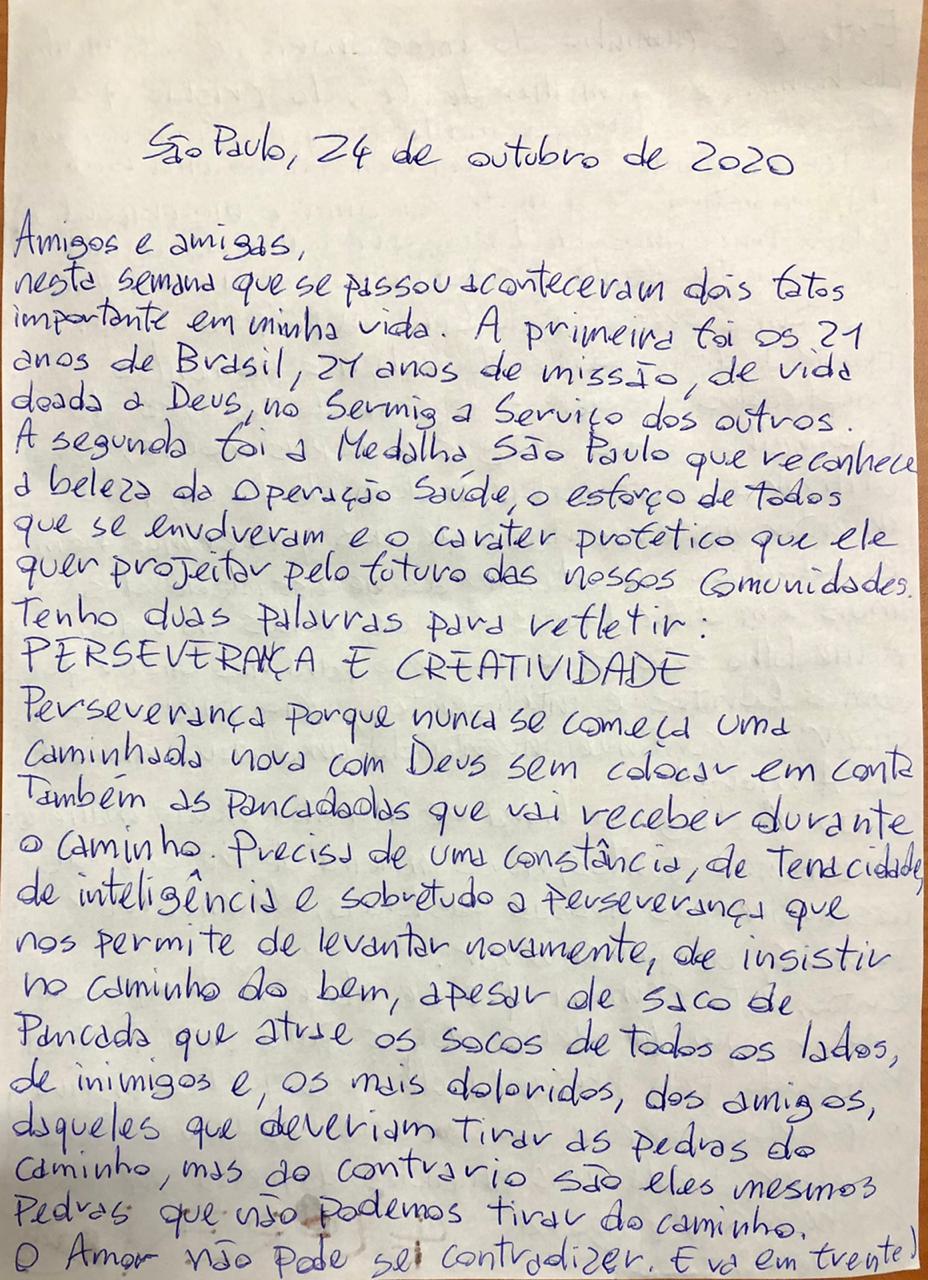 São Paulo, 24 de outubro de 2020
Amigos e amigas,
nesta semana que se passou aconteceram dois fatos
importante em minha vida. A primeira foi os 21
anos de Brasil, 21 anos de missão, de vida
doada a Deus, no Sermig a Serviço dos outros.
A segunda foi a Medalha São Paulo que reconhece
a beleza da Operação Saúde, o esforço de todos
que se envolveram e o caráter profético que ele
quer projeitar pelo futuro das nossos Comunidades.
Tenho duas palavras para refletir:
PERSEVERANÇA E CREATIVIDADE
Perseverança porque nunca se começa uma
caminhada nova com Deus sem colocar em conta
Também as pancadadas que vai receber durante
o caminho. Precisa de uma constância, de tenacidade,
de inteligência e sobretudo a perseverança que
nos permite de levantar novamente, de insistir
no caminho do bem, apesar de saco de
Pancada que atrae os socos de todos os lados,
de inimigos e, os mais doloridos, dos amigos,
daqueles que deveriam tirar as pedras do
caminho, mas ao contrario são eles mesmos
Pedras que não podemos tirar do caminho.
O Amor não pode se contradizer. E va em frente!